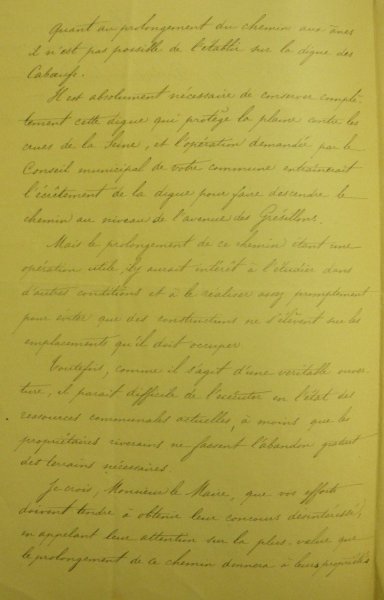 Quant au prolongement du chemin aux ânes
il n'est pas possible de l'établir sur la digue des
Cabœufs.
Il est absolument nécessaire de conserver complè-
tement cette digue qui protège la plaine contre les
crues de la Seine, et l'opération demandée par le
Conseil municipal de votre commune entraînerait
l'écrêtement de la digue pour faire descendre le
chemin au niveau de l'avenue des Grésillons.
Mais le prolongement de ce chemin étant une
opération utile, il y aurait intérêt à l'étudier dans
d'autres conditions et à le réaliser assez promptement
pour éviter que des constructions ne s'élèvent sur les
emplacements qu'il doit occuper.
Toutefois, comme il s'agit d'une véritable ouver-
ture, il paraît difficile de l'exécuter en l'état des
ressources communales actuelles, à moins que les
propriétaires riverains ne fassent l'abandon gratuit
des terrains nécessaires.
Je crois, Monsieur le Maire, que vos efforts
doivent tendre à obtenir leur concours désintéressé,
en appelant leur attention sur la plus-value que
le prolongement de ce chemin donnera à leurs propriétés